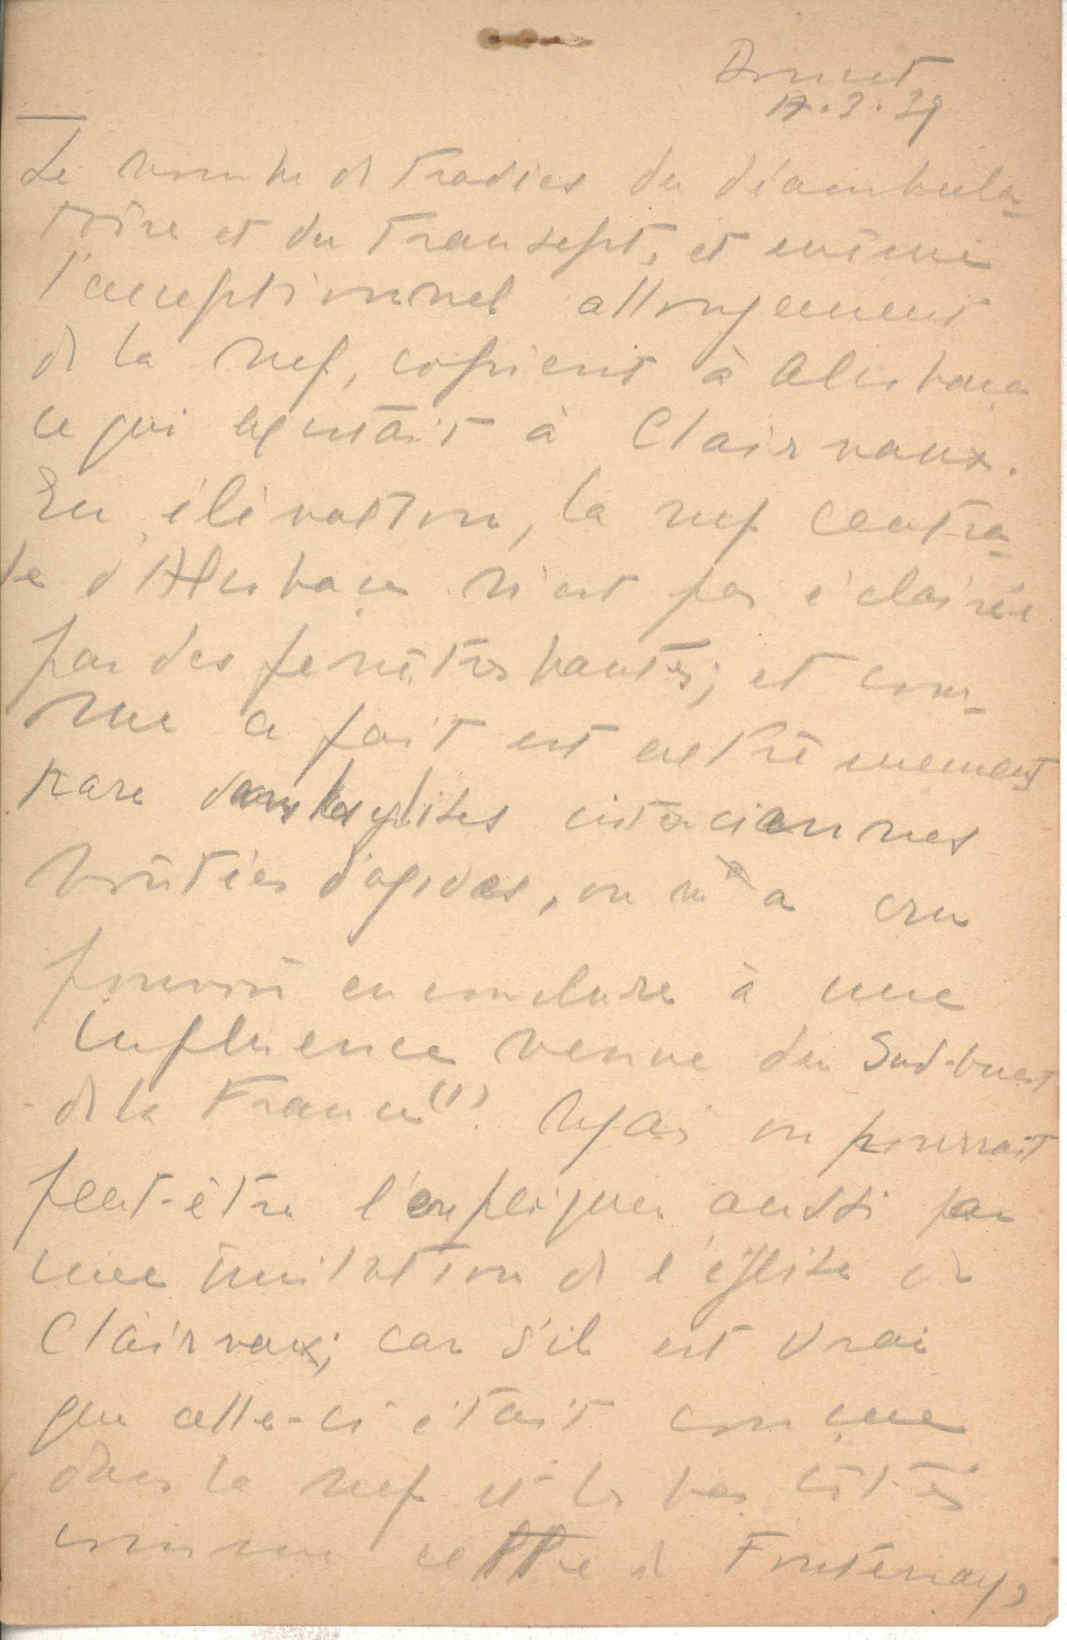 17.3.39
Le nombre de travées du déambula-
toire et du transept, et même
l'exceptionnel allongement
de la nef, copient à Alcobaça
ce qui existait à Clairvaux.
En élévation, la nef centra-
le d'Alcobaça n'est pas éclairée
par des fenêtres hautes; et com-
me ce fait est extrêmement
rare dans les églises cisterciennes
voûtées d'ogives, on a cru
pouvoir en conclure à une
influence venue du Sud-Ouest
de la France(1). Mais on pourrait
peut-être l'expliquer aussi par
une imitation de l'église de
Clairvaux; car s'il est vrai
que celle-ci était conçue
dans la nef et les bas côtés
comme celle de Fontenay,